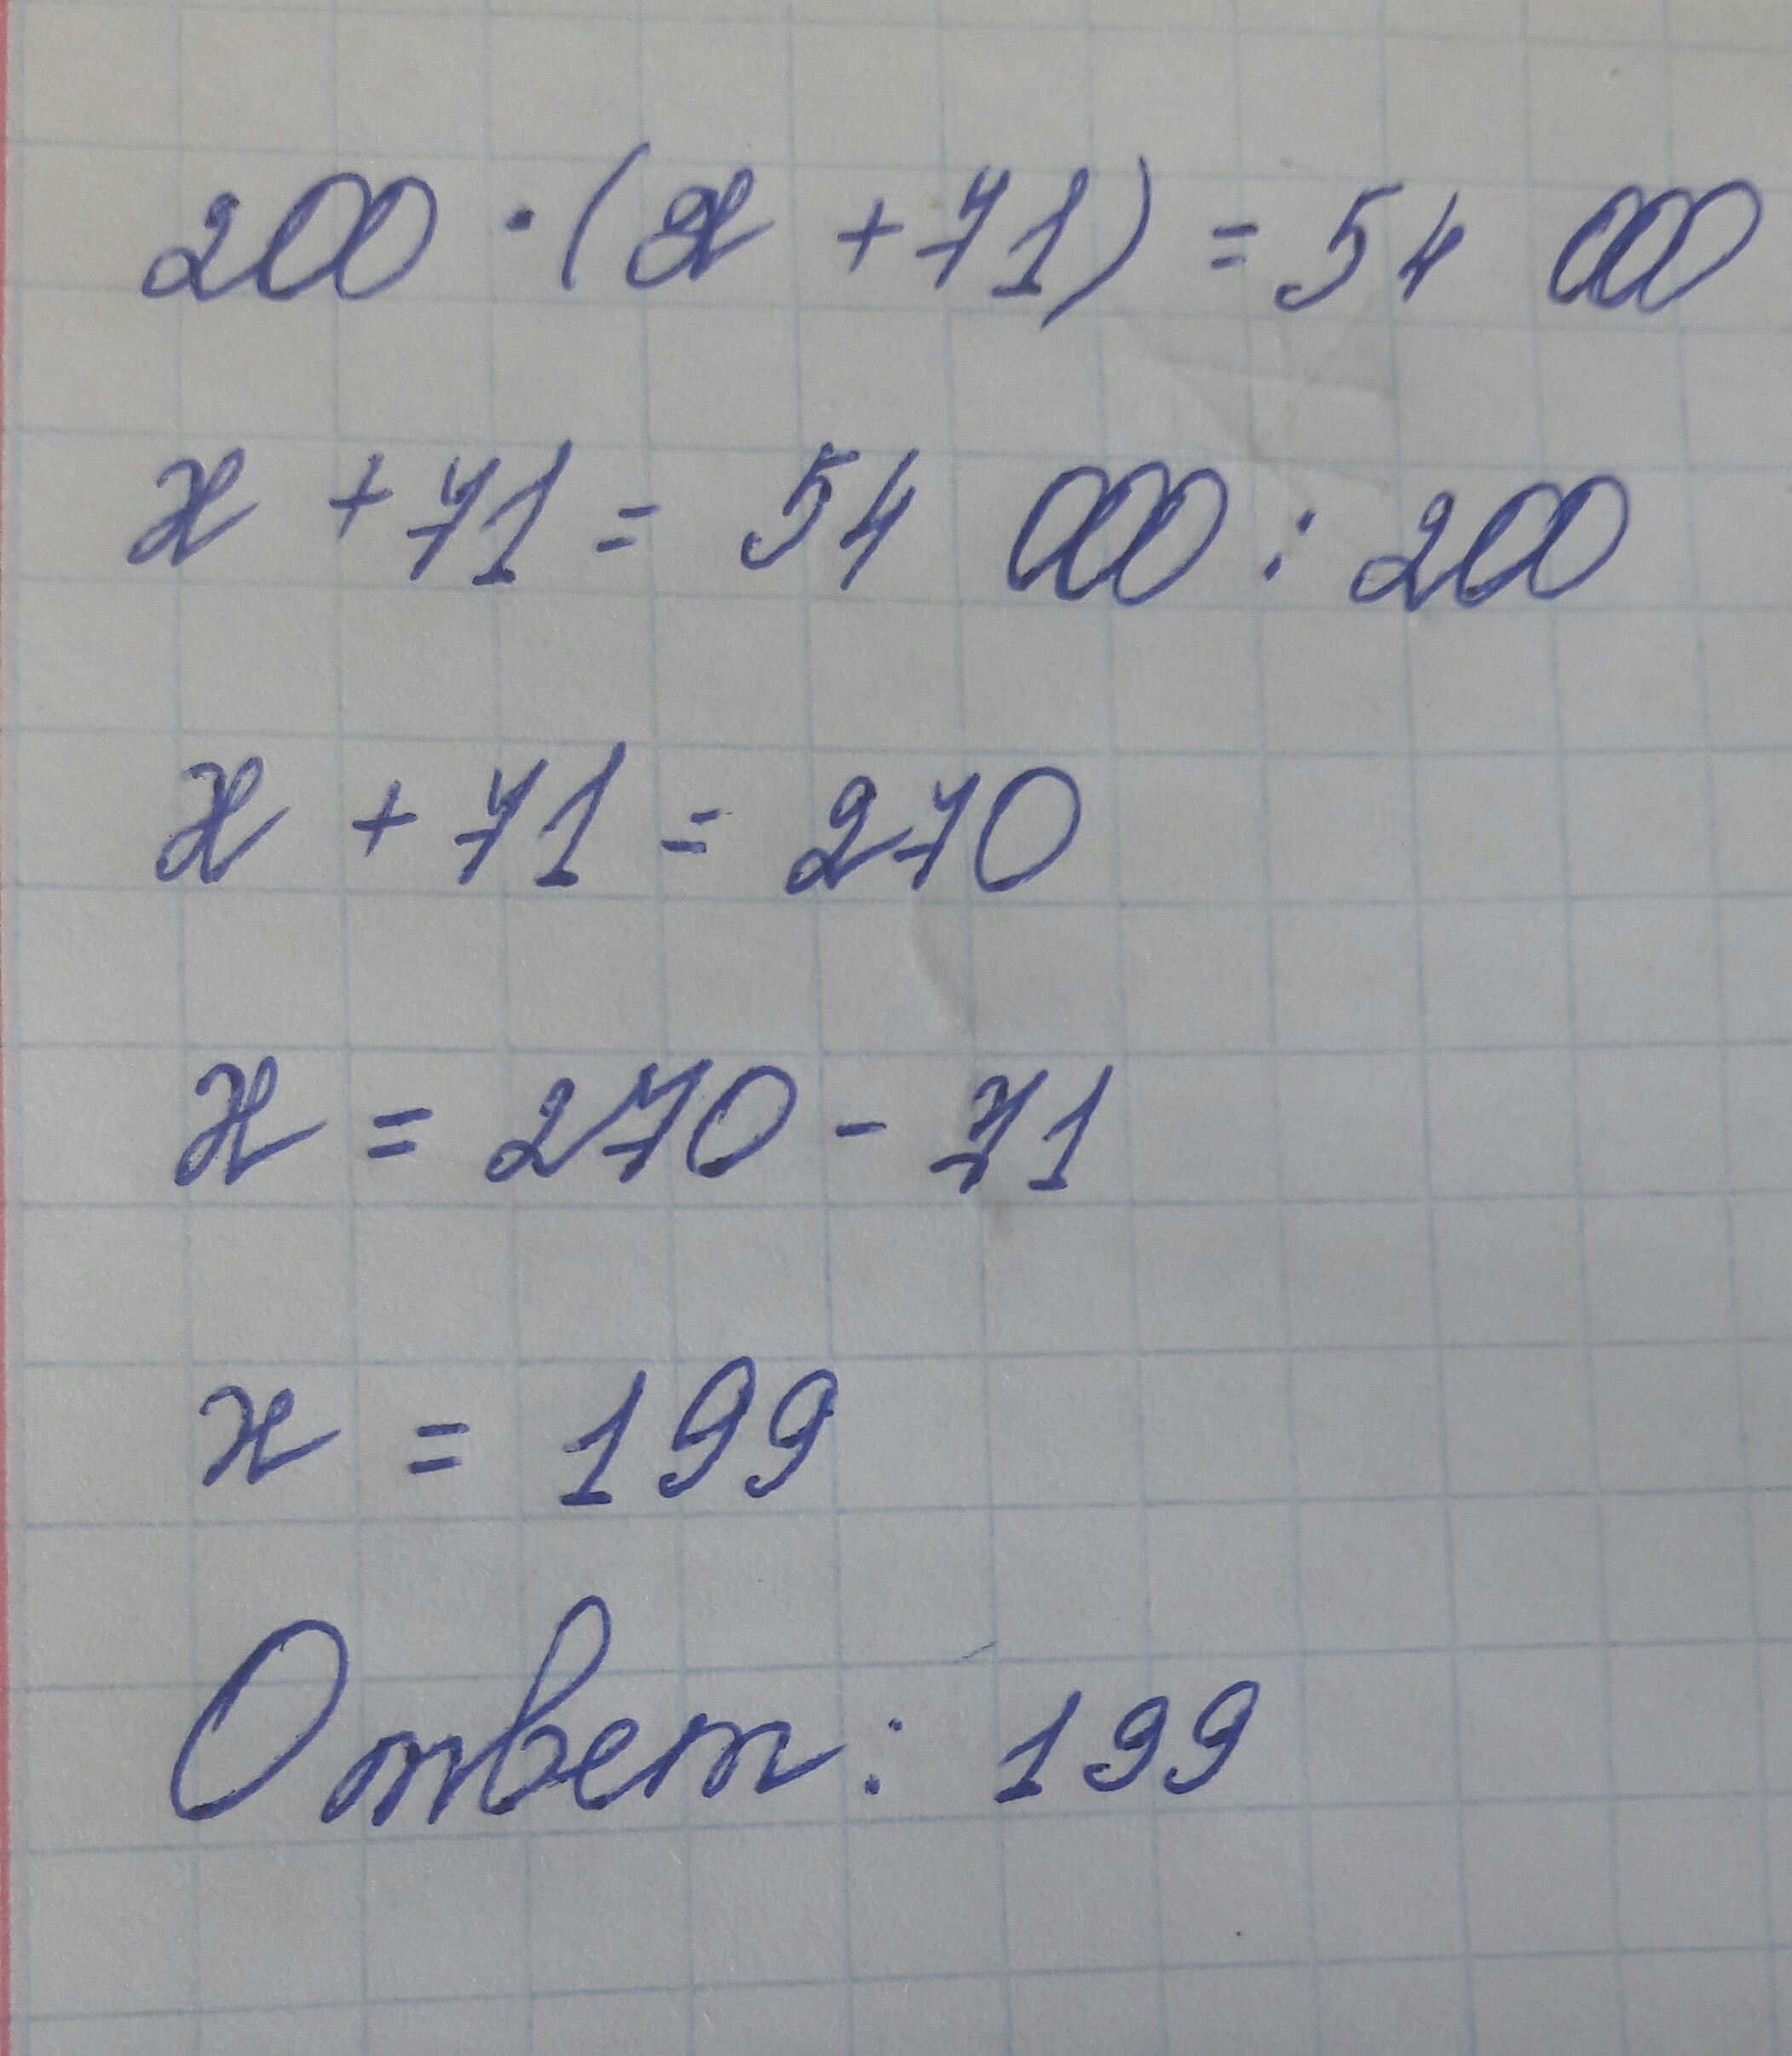 200 · (x + 71) = 54 000
x + 71 = 54 000 : 200
x + 71 = 270
x = 270 - 71
x = 199
Ответ: 199